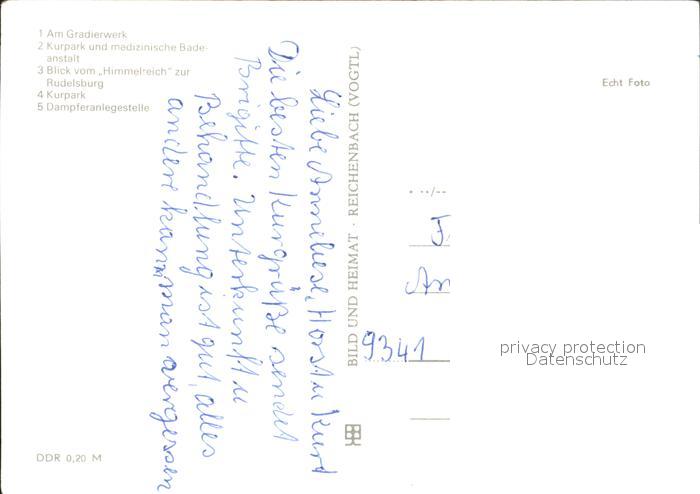 1 Am Gradierwerk
2 Kurpark und medizinische Bade-
anstalt
3 Blick vom „Himmelreich" zur
Rudelsburg
4 Kurpark
5 Dampferanlegestelle
Echt Foto
Liebe Anneliese, Horst u Kurt
Die besten Kurgrüße sendet
Brigitte. Unterkunft u
Behandlung ist gut, alles
andere kann man vergessen
BILD UND HEIMAT · REICHENBACH (VOGTL)
An
9341
privacy protection
Datenschutz
DDR 0,20 M